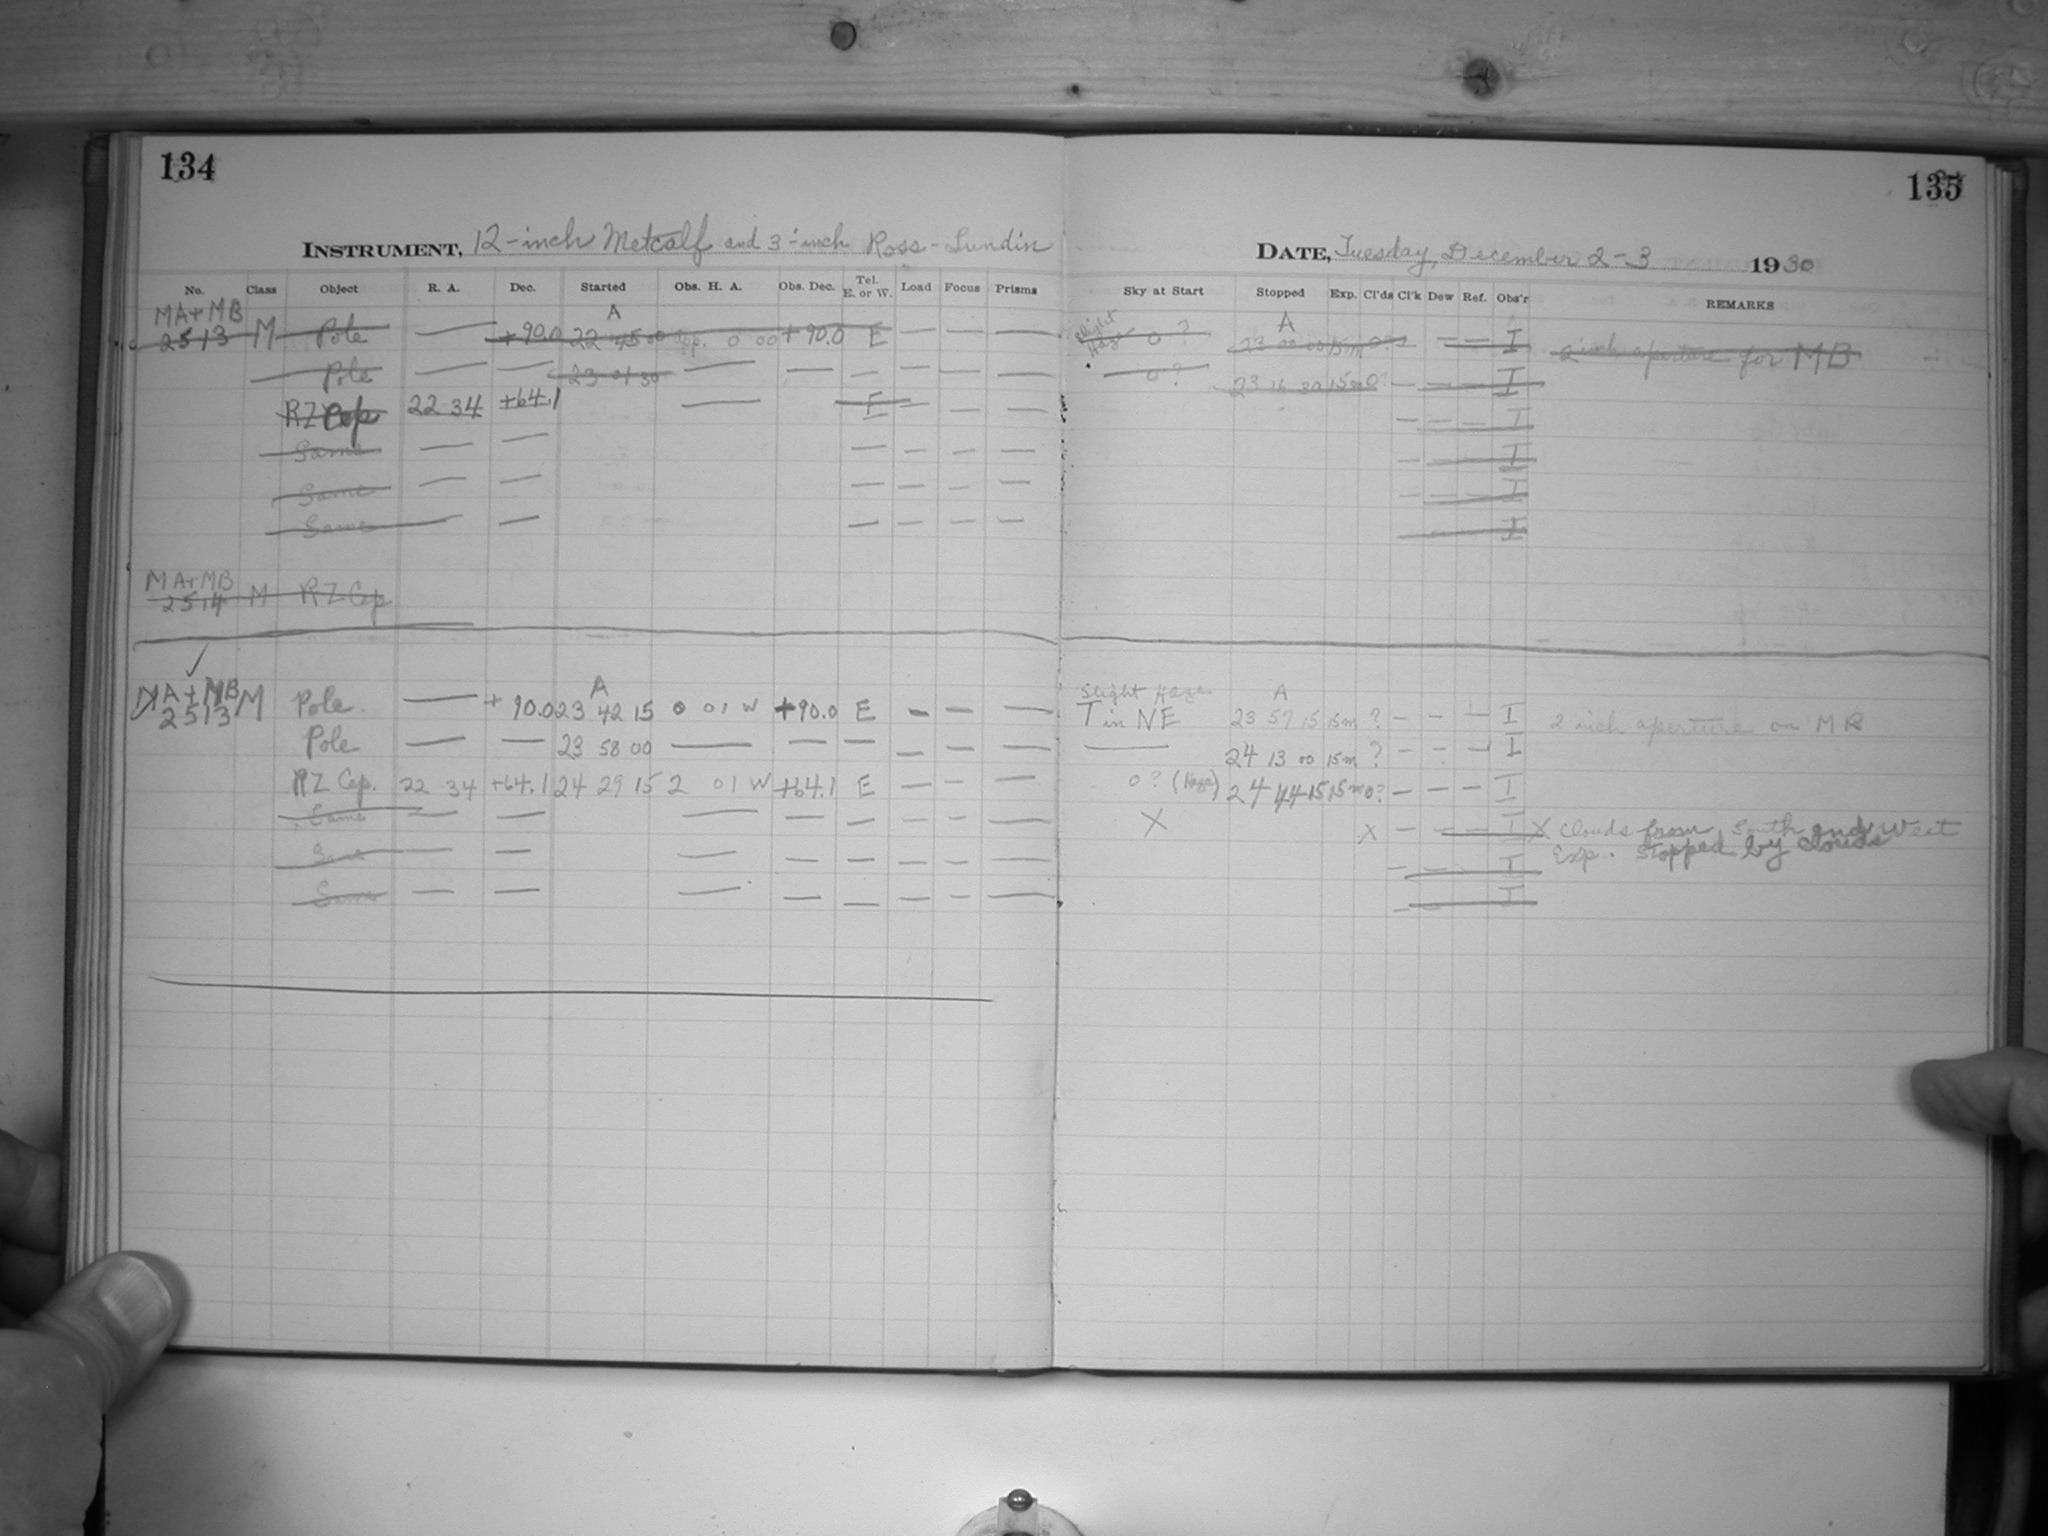 134
135
INSTRUMENT, 12-inch Metcalf and 3-inch Ross-Lundin
DATE, Tuesday, December 2-3 1930
No. Class Object R. A. Dec. Started Obs. H. A. Obs. Dec. Tel. E. or W. Load Focus Prisms Sky at Start Stopped Exp. Cl'ds Cl'k Dew Ref. Obs'r REMARKS
MA+MB A Slight A
2513 M Pole — +90.0 22 45 00 app. 0 00 +90.0 E — — — Haze 0? 23 00 00 15m 0? — — — I 2 inch aperture for MB
Pole — — 23 01 30 — — — — — — 0? 23 16 30 15m 0? — — — I
RZ Cep 22 34 +64.1 — E — — — — — — I
Same — — — — — — — — — I
Same — — — — — — — — — I
Same — — — — — — I
MA+MB
2514 M RZ Cep
✓
MA+MB A Slight Haze A
2513 M Pole — +90.0 23 42 15 0 01 W +90.0 E — — — T in NE 23 57 15 15m ? — — — I 2 inch aperture on MB
Pole — — 23 58 00 — — — — — — — 24 13 00 15m ? — — — I
RZ Cep. 22 34 +64.1 24 29 15 2 01 W +64.1 E — — — 0? (Haze) 24 44 15 15m 0? — — — I
Same — — — — — — — — X X — — — I X Clouds from South and West
Exp. stopped by clouds
Same — — — — — — — — — — I
Same — — — — — — — — — — I